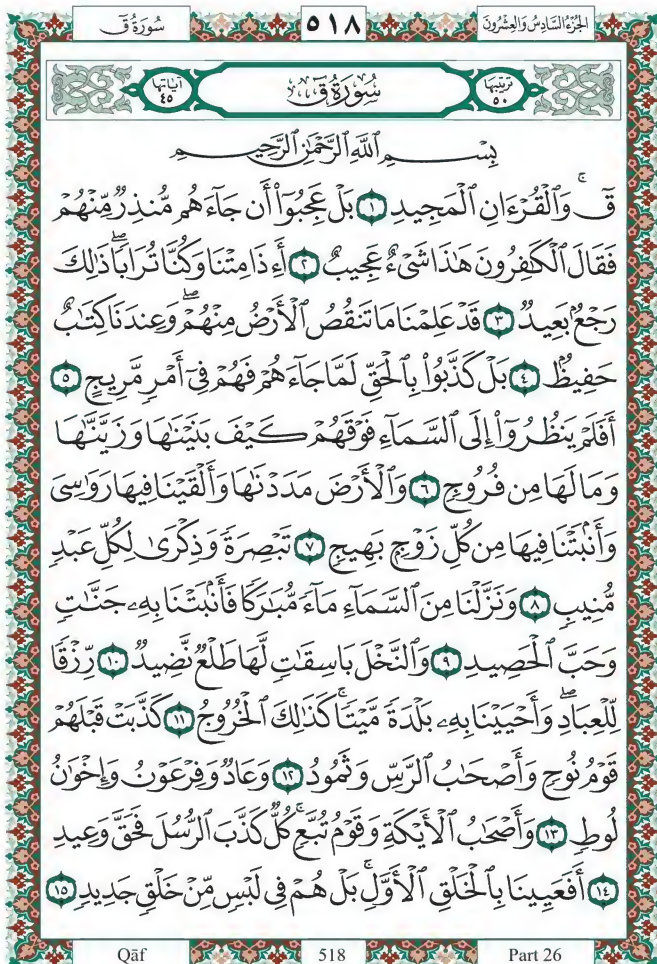 سُورَةُ قٓ ٥١٨ الجُزْءُ السَّادِسُ وَالعِشْرُونَ
آيَاتُهَا ٤٥ سُورَةُ قٓ تَرْتِيبُهَا ٥٠
بِسْمِ ٱللَّهِ ٱلرَّحْمَٰنِ ٱلرَّحِيمِ
قٓۚ وَٱلْقُرْءَانِ ٱلْمَجِيدِ ١ بَلْ عَجِبُوٓا۟ أَن جَآءَهُم مُّنذِرٌ مِّنْهُمْ
فَقَالَ ٱلْكَٰفِرُونَ هَٰذَا شَىْءٌ عَجِيبٌ ٢ أَءِذَا مِتْنَا وَكُنَّا تُرَابًاۖ ذَٰلِكَ
رَجْعٌۢ بَعِيدٌ ٣ قَدْ عَلِمْنَا مَا تَنقُصُ ٱلْأَرْضُ مِنْهُمْۖ وَعِندَنَا كِتَٰبٌ
حَفِيظٌۢ ٤ بَلْ كَذَّبُوا۟ بِٱلْحَقِّ لَمَّا جَآءَهُمْ فَهُمْ فِىٓ أَمْرٍ مَّرِيجٍ ٥
أَفَلَمْ يَنظُرُوٓا۟ إِلَى ٱلسَّمَآءِ فَوْقَهُمْ كَيْفَ بَنَيْنَٰهَا وَزَيَّنَّٰهَا
وَمَا لَهَا مِن فُرُوجٍ ٦ وَٱلْأَرْضَ مَدَدْنَٰهَا وَأَلْقَيْنَا فِيهَا رَوَٰسِىَ
وَأَنۢبَتْنَا فِيهَا مِن كُلِّ زَوْجٍۭ بَهِيجٍ ٧ تَبْصِرَةً وَذِكْرَىٰ لِكُلِّ عَبْدٍ
مُّنِيبٍ ٨ وَنَزَّلْنَا مِنَ ٱلسَّمَآءِ مَآءً مُّبَٰرَكًا فَأَنۢبَتْنَا بِهِۦ جَنَّٰتٍ
وَحَبَّ ٱلْحَصِيدِ ٩ وَٱلنَّخْلَ بَاسِقَٰتٍ لَّهَا طَلْعٌ نَّضِيدٌ ١٠ رِّزْقًا
لِّلْعِبَادِۖ وَأَحْيَيْنَا بِهِۦ بَلْدَةً مَّيْتًاۚ كَذَٰلِكَ ٱلْخُرُوجُ ١١ كَذَّبَتْ قَبْلَهُمْ
قَوْمُ نُوحٍ وَأَصْحَٰبُ ٱلرَّسِّ وَثَمُودُ ١٢ وَعَادٌ وَفِرْعَوْنُ وَإِخْوَٰنُ
لُوطٍ ١٣ وَأَصْحَٰبُ ٱلْأَيْكَةِ وَقَوْمُ تُبَّعٍۚ كُلٌّ كَذَّبَ ٱلرُّسُلَ فَحَقَّ وَعِيدِ
١٤ أَفَعَيِينَا بِٱلْخَلْقِ ٱلْأَوَّلِۚ بَلْ هُمْ فِى لَبْسٍ مِّنْ خَلْقٍ جَدِيدٍ ١٥
Qāf 518 Part 26